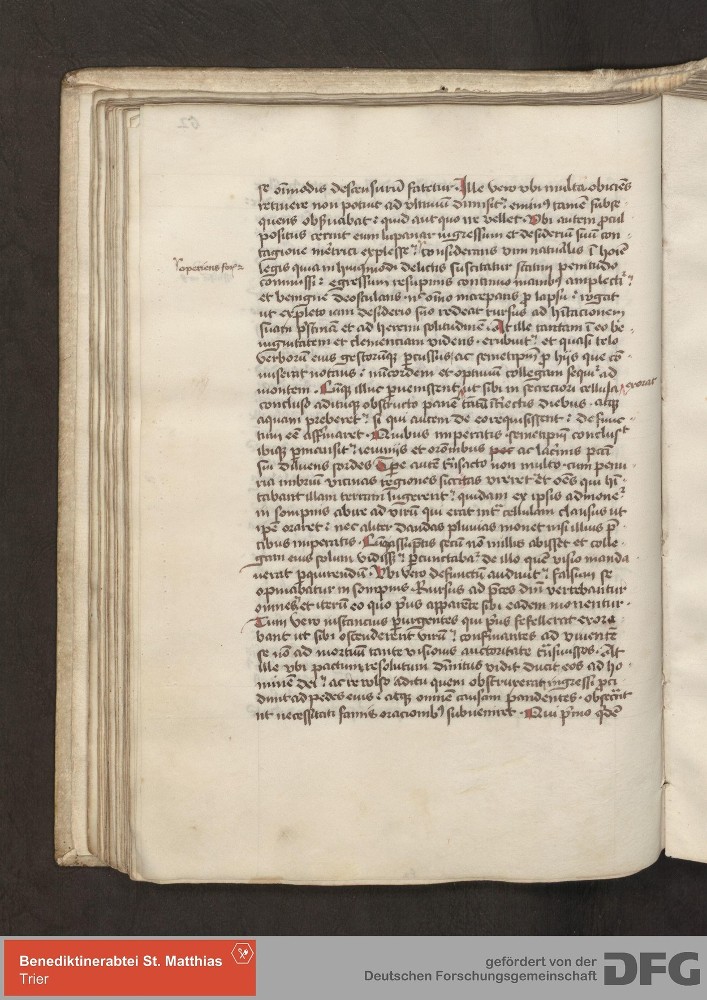 se om̄modis descensurū fatetur. Ille vero vbi multa obiciēs
retinere non potuit ad vltimū dimisit: eminꝯ tamē subse
quens obs̄uabat: quid aut quo ire vellet. Vbi autem ꝓcul
positus cernit eum lupanar ingressum et desideriū suū con
tagione met̄rici explesse: considerans vim nat̄alis ī hoīe
operiens foris
legis quia in huiꝰmodi delictis suscitatur statim penitudo
commissi: egressum resupinis continuo manibꝫ amplectit̄
et benigne deosculans nō om̄io increpans ꝓ lapsu: rogat
ut expleto iam desiderio suo redeat rursus ad habitacionem
suam p̄stinam et ad heremi solitudinē. At ille tantam ī eo be
nignitatem et clementiam videns erubuit: et quasi telo
verborum eius gestorūqꝫ ꝑcussus ac semetip̄m ꝓ hijs que cō
miserat notans: misericordem et optimū collegam sequit̄ ad
montem. Cūqꝫ illuc ꝑuenissent ut sibi in secreciori cellula exorat
concluso adituqꝫ obstructo panē tātū īteriectis diebus atqꝫ
aquam preberet: si qui autem de eo requisissent: defunc
tum eē affirmaret. Quibus impetratis semetip̄um conclusit
ibiqꝫ ꝑmansit: ieiunijs et orōnibus ac lacrimis pctī
sui diluens sordes Tꝑe autē trāsacto non multo cum penu
ria imbrium vicinas regiones siccitas vreret et oēs qui hī
tabant illam terram lugerent: quidam ex ipsis admonet̄
in sompnis abire ad virū qui erat intᵃ cellulam clausus ut
ip̄e oraret: nec aliter dandas pluuias monet nisi illius p̄
cibus impetratis. Cūqꝫ assūptis secū nōnullis abisset et colle
gam eius solum vidisset: ꝑcunctabat̄ de illo quē visio manda
uerat ꝑquirendū. Vbi vero defunctū audiuit: falsum se
opinabatur in sompnis. Rursus ad p̄ces dn̄i vertebantur
omnes et iterū eo quo p̄us apparēte sibi eadem monentur.
Tum vero instancius ꝑurgentes qui p̄us fefellerat exora
bant ut sibi ostenderent virū: confirmantes ad viuentē
se nō ad mortuū tante visionis auctoritate trāsmissos. At
ille vbi pactum resolutum diuinitus vidit ducit eos ad ho
minem dei: ac reuolso aditu quem obstruxerat ingressi ꝓci
dunt ad pedes eius: atqꝫ omnē causam pandentes obsecrāt
ut necessitati famis oracionibꝫ subueniret. Qui p̄mo qdē
62
Benediktinerabtei St. Matthias
Trier
gefördert von der
Deutschen Forschungsgemeinschaft
DFG